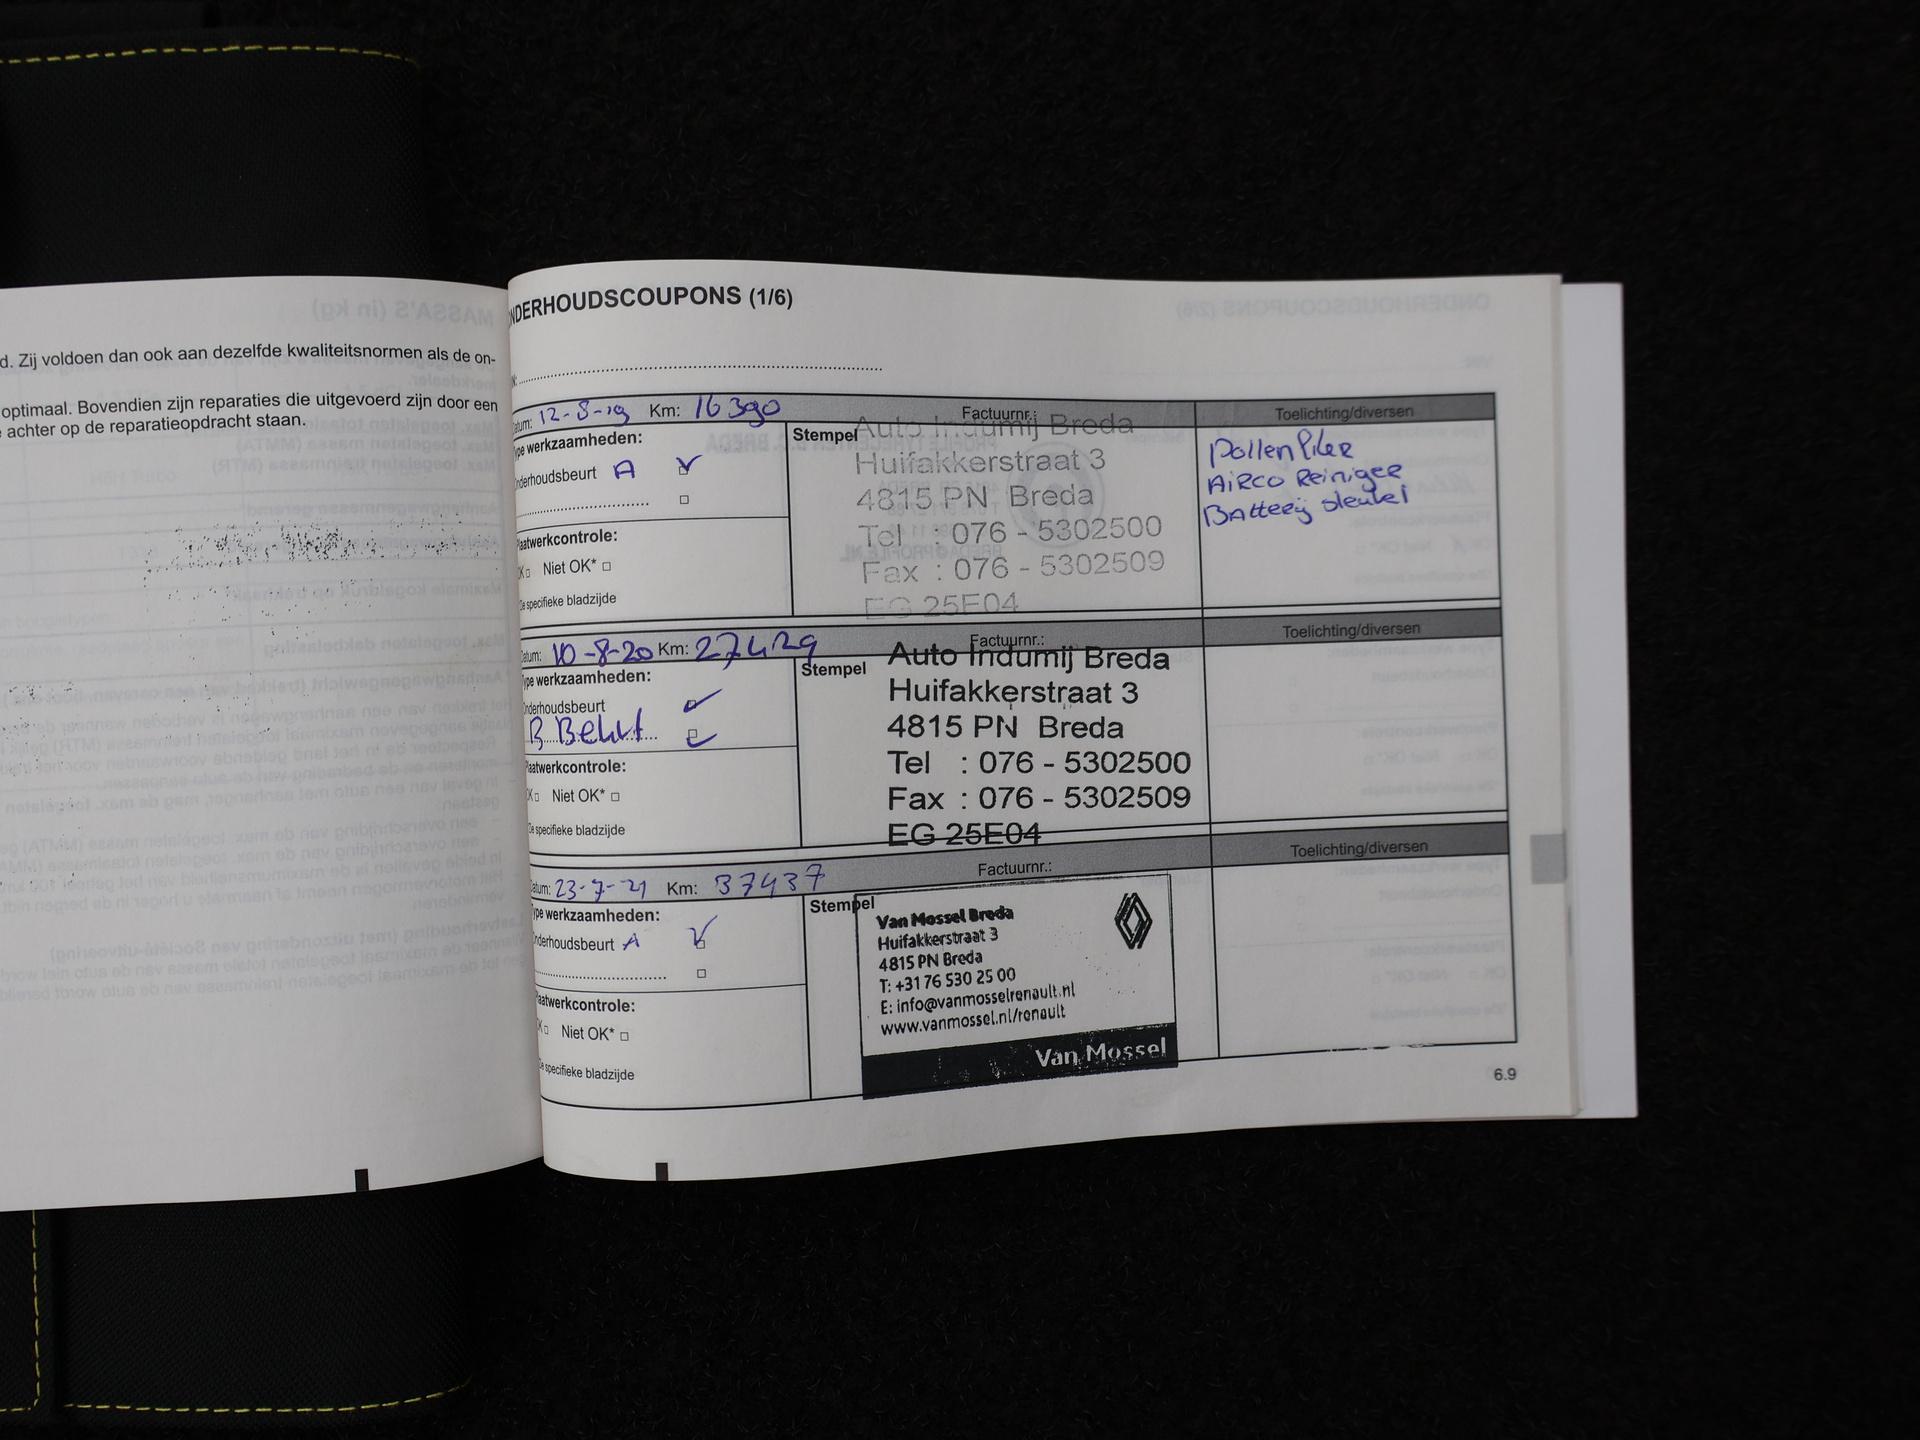 d. Zij voldoen dan ook aan dezelfde kwaliteitsnormen als de on-
optimaal. Bovendien zijn reparaties die uitgevoerd zijn door een
achter op de reparatieopdracht staan.
NDERHOUDSCOUPONS (1/6)
atum: 12-8-19 Km: 16390 Factuurnr.: Toelichting/diversen
ype werkzaamheden:
nderhoudsbeurt A
Plaatwerkcontrole:
OK Niet OK*
De specifieke bladzijde
Stempel
Auto Indumij Breda
Huifakkerstraat 3
4815 PN Breda
Tel : 076 - 5302500
Fax : 076 - 5302509
EG 25E04
Airco Reiniger
Batterij sleutel
atum: 10-8-20 Km: 27429 Factuurnr.: Toelichting/diversen
ype werkzaamheden:
nderhoudsbeurt
laatwerkcontrole:
OK Niet OK*
De specifieke bladzijde
Stempel
Auto Indumij Breda
Huifakkerstraat 3
4815 PN Breda
Tel : 076 - 5302500
Fax : 076 - 5302509
EG 25E04
atum: 23-7-21 Km: 37437 Factuurnr.: Toelichting/diversen
ype werkzaamheden:
nderhoudsbeurt A
laatwerkcontrole:
OK Niet OK*
De specifieke bladzijde
Stempel
Van Mossel Breda
Huifakkerstraat 3
4815 PN Breda
T: +31 76 530 25 00
E: info@vanmosselrenault.nl
www.vanmossel.nl/renault
Van Mossel
6.9